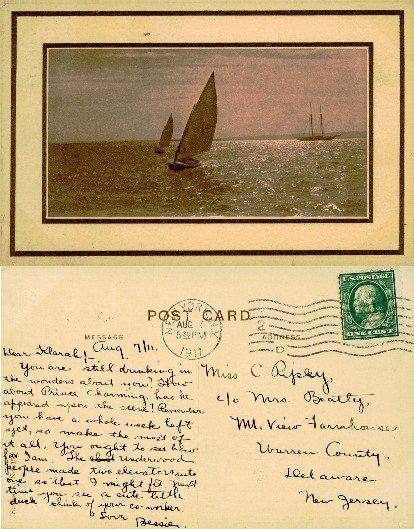 POST CARD
MESSAGE
ADDRESS
NEW YORK, N.Y.
AUG 7
5 30 PM
1911
2
D
U.S. POSTAGE
ONE CENT
Aug. 7/11.
Dear Klarah!
You are still drinking in
the wonders about you? How
about Prince Charming, has he
appeared upon the scene? Remember
you have a whole week left
yet, so make the most of
it all. You ought to see how
I am. The Underwood
people made two elevators into
one so that I might fit. Next
time you see a cute little
duck think of your co-worker.
Love Bessie.
Miss C Ripley,
c/o Mrs. Beatty.
Mt. View Farmhouse
Warren County.
Delaware
New Jersey.